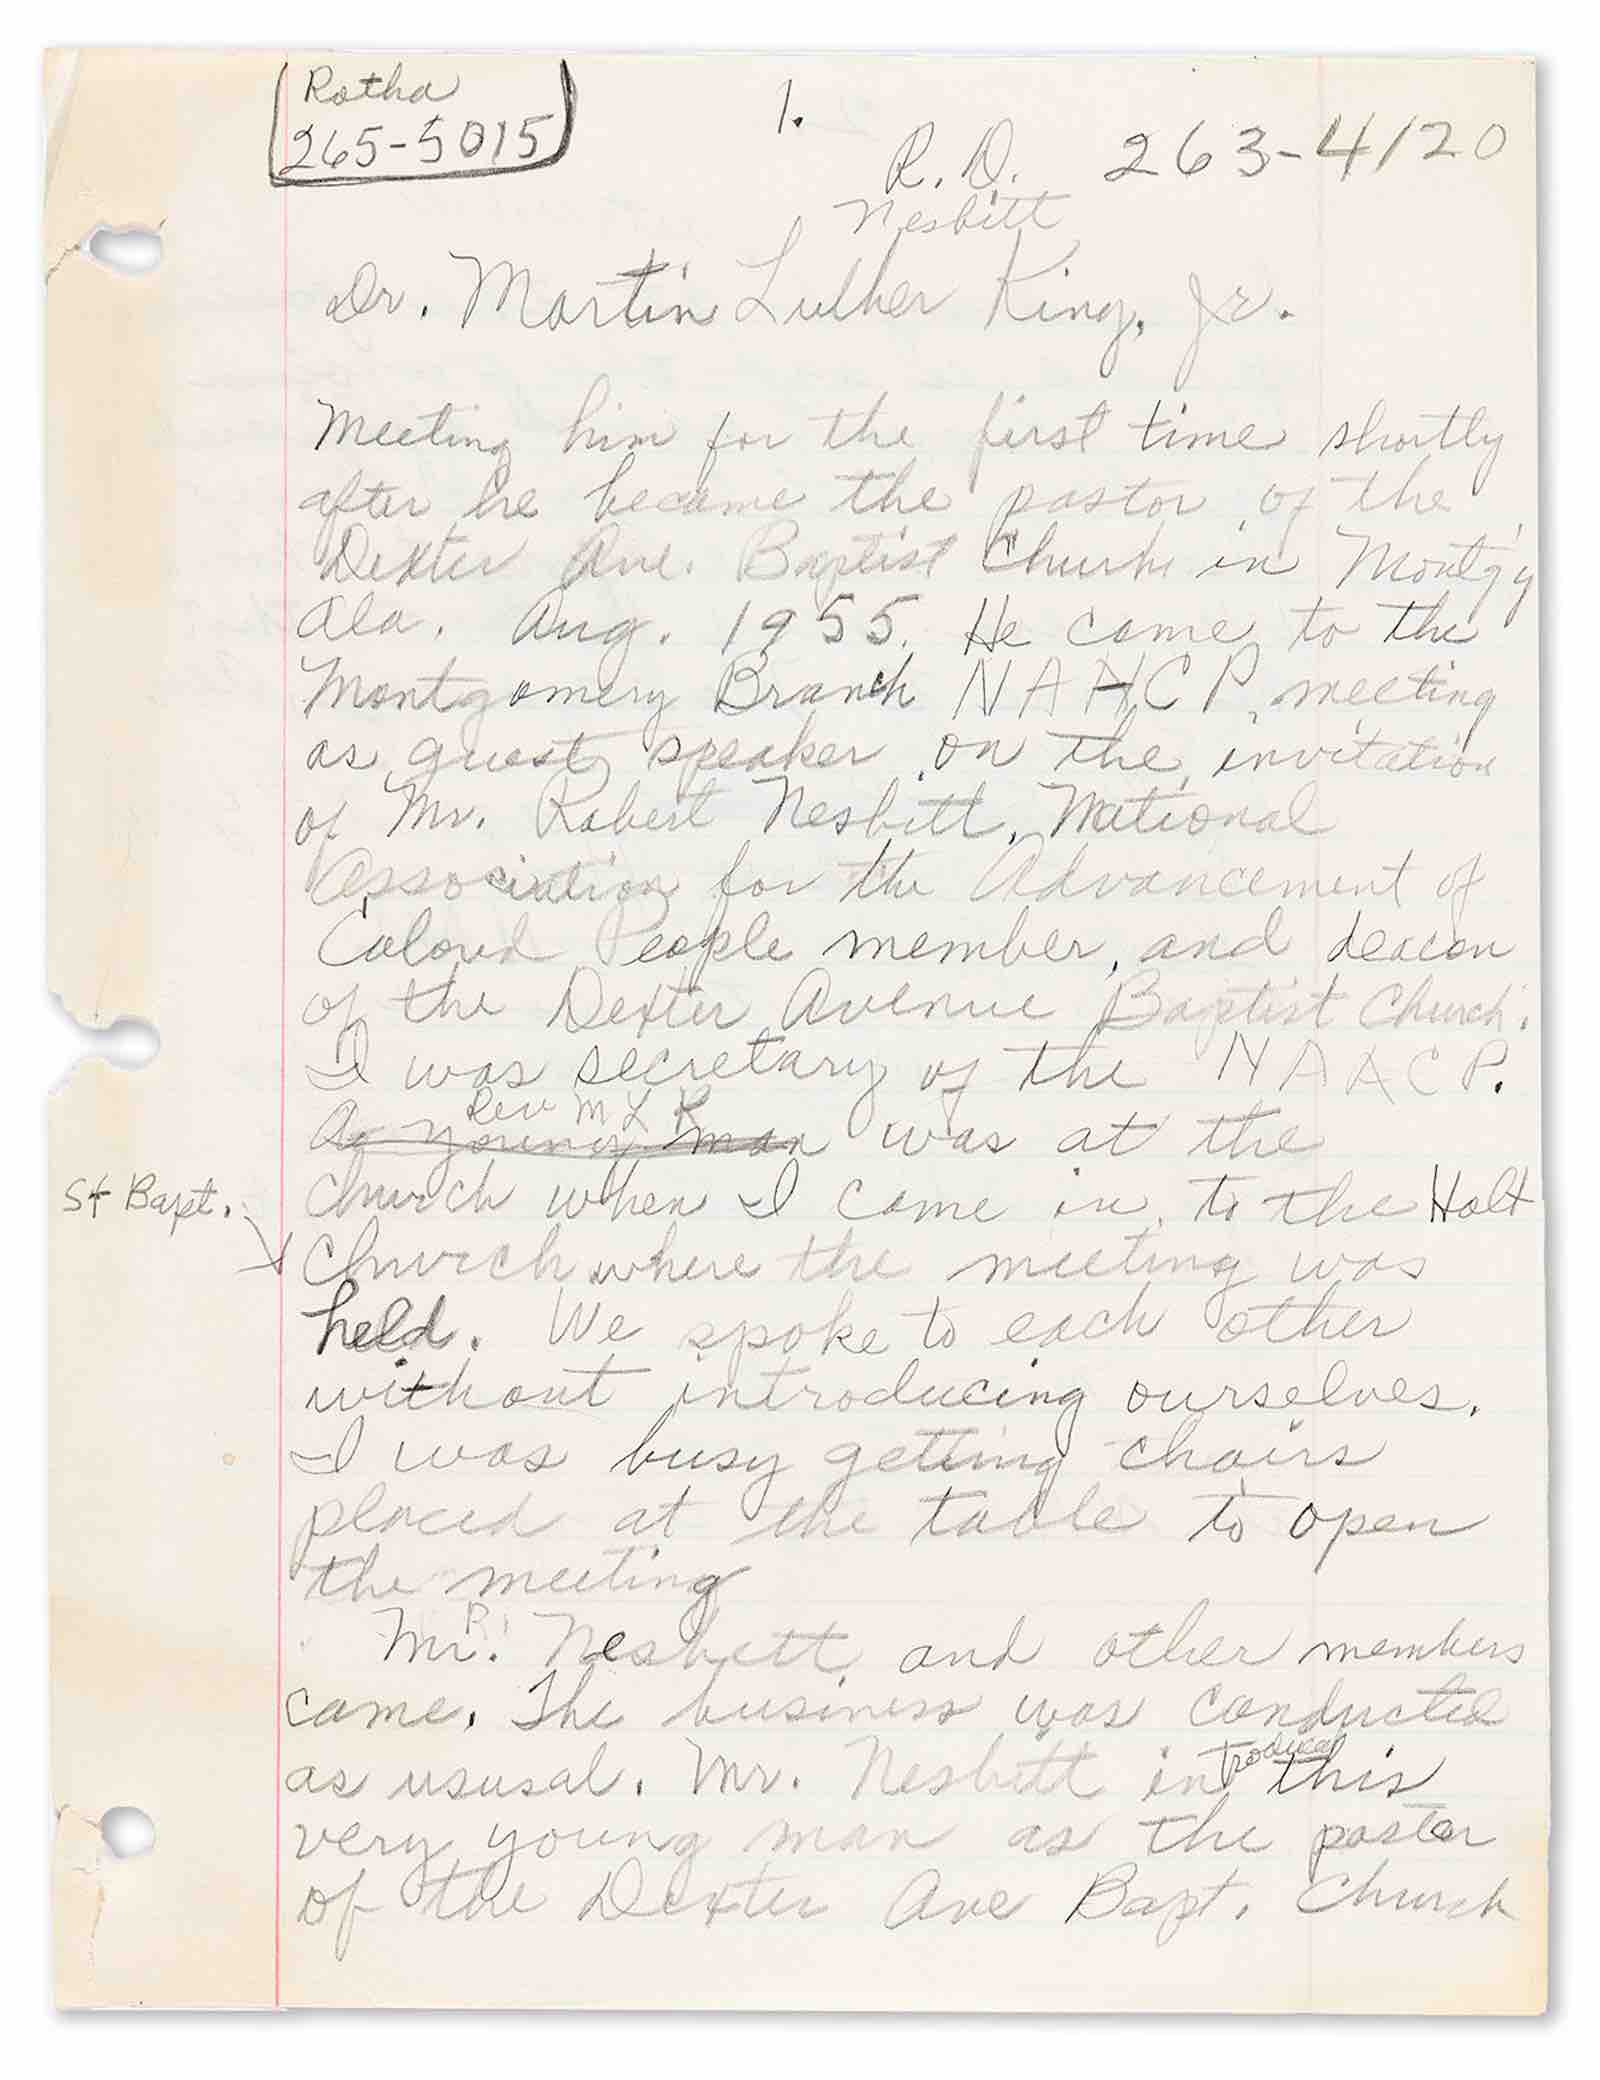 Rotha
265-5015
1.
R. D. 263-4120
Nesbitt
Dr. Martin Luther King, Jr.
Meeting him for the first time shortly
after he became the pastor of the
Dexter Ave. Baptist Church in Montg'y
Ala. Aug. 1955. He came to the
Montgomery Branch NAACP meeting
as guest speaker on the invitation
of Mr. Robert Nesbitt, National
Association for the Advancement of
Colored People member, and deacon
of the Dexter Avenue Baptist Church.
I was secretary of the NAACP.
Rev M L K
A young man was at the
church when I came in to the Holt
St Bapt.
Church where the meeting was
held. We spoke to each other
without introducing ourselves.
I was busy getting chairs
placed at the table to open
the meeting
Mr. R. Nesbitt and other members
came. The business was conducted
as ususal. Mr. Nesbitt introduced this
very young man as the pastor
of the Dexter Ave Bapt. Church